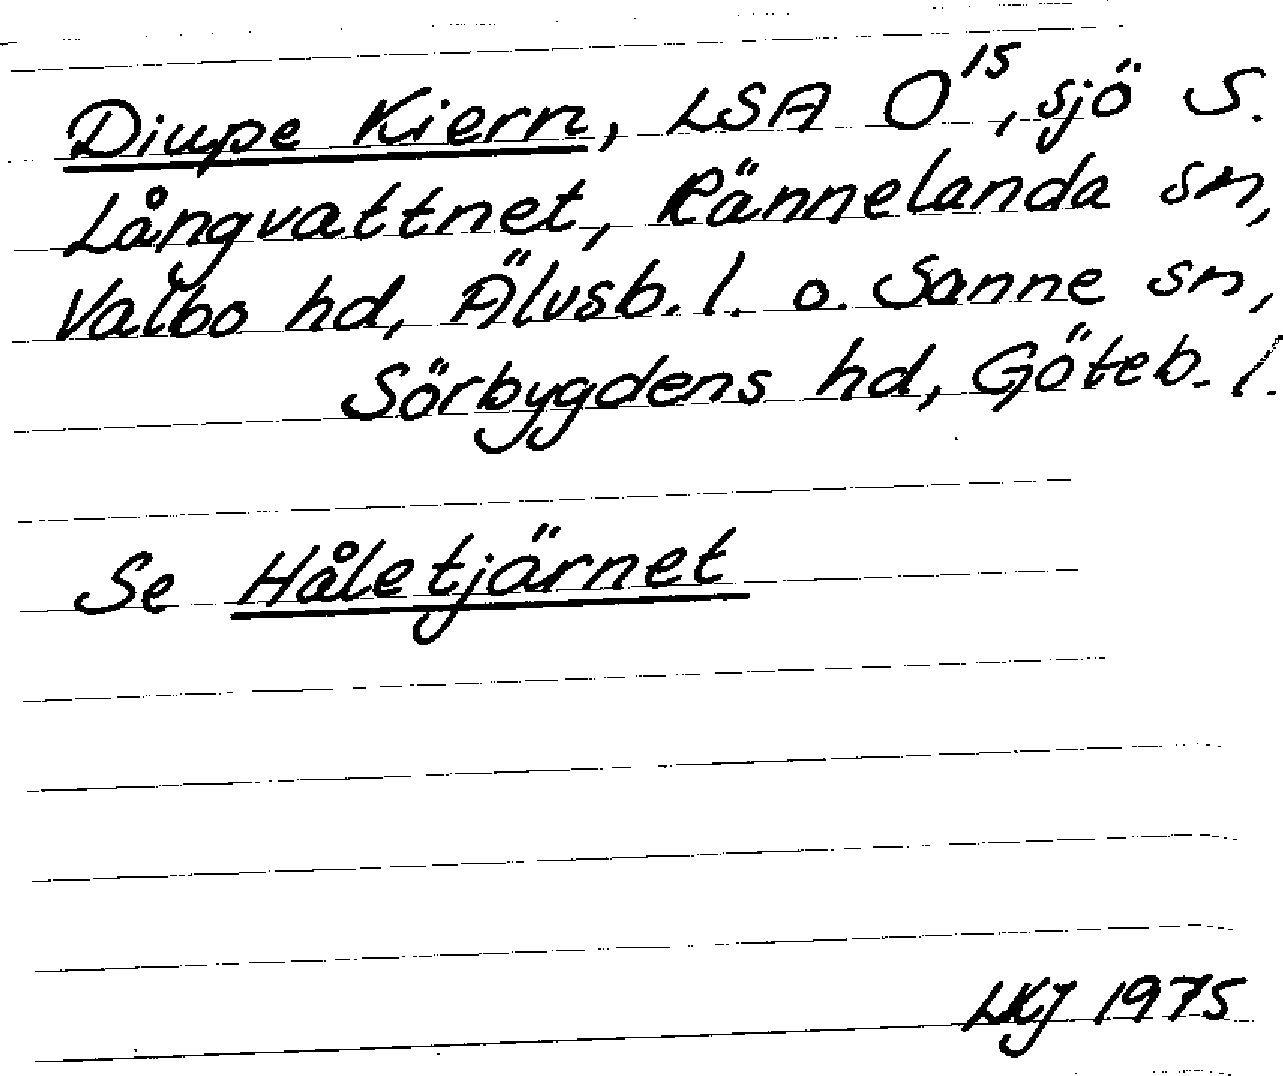 Diupe Kiern, LSA O15, sjö S.
Långvattnet, Rännelanda sn,
Valbo hd, Älvsb. l. o. Sanne sn,
Sörbygdens hd, Göteb. l.
Se Håletjärnet
LKJ 1975